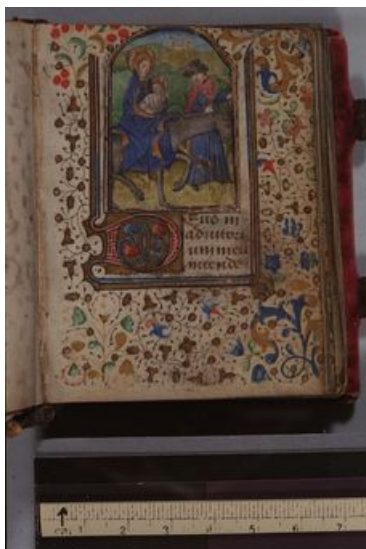 Deus in
adiutori
um meu
intende
cm 1 2 3 4 5 6 7